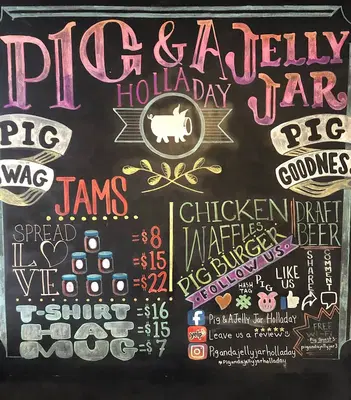 PIG & A JELLY JAR
HOLLADAY
PIG
SWAG
PIG
GOODNESS
JAMS
SPREAD
LOVE
=$8
=$15
=$22
T-SHIRT =$16
HAT =$15
MUG =$7
CHICKEN
WAFFLES
PIG BURGER
DRAFT
BEER
FOLLOW US
HASH
TAG
PIG
LIKE
US
SHARE
COMMENT
Pig & AJelly Jar Holladay
Leave us a review
Pigandajellyjarholladay
#pigandajellyjarholladay
FREE
WI-FI